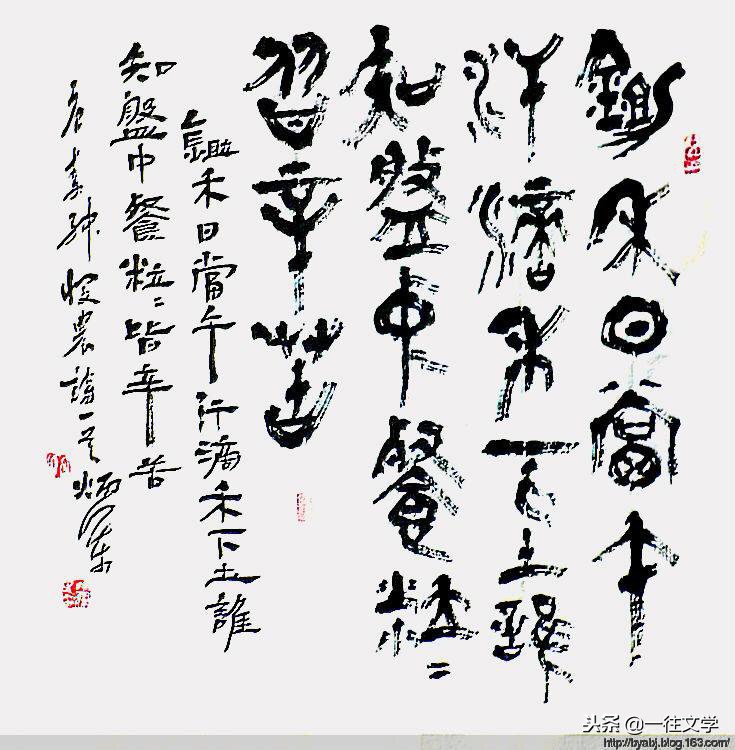 鋤禾日當午
汗滴禾下土誰
知盤中餐粒〻
皆辛苦
鋤禾日當午汗滴禾下土誰
知盤中餐粒〻皆辛苦
唐李紳憫農詩一首
头条 @一往文学
http://byabj.blog.163.com/